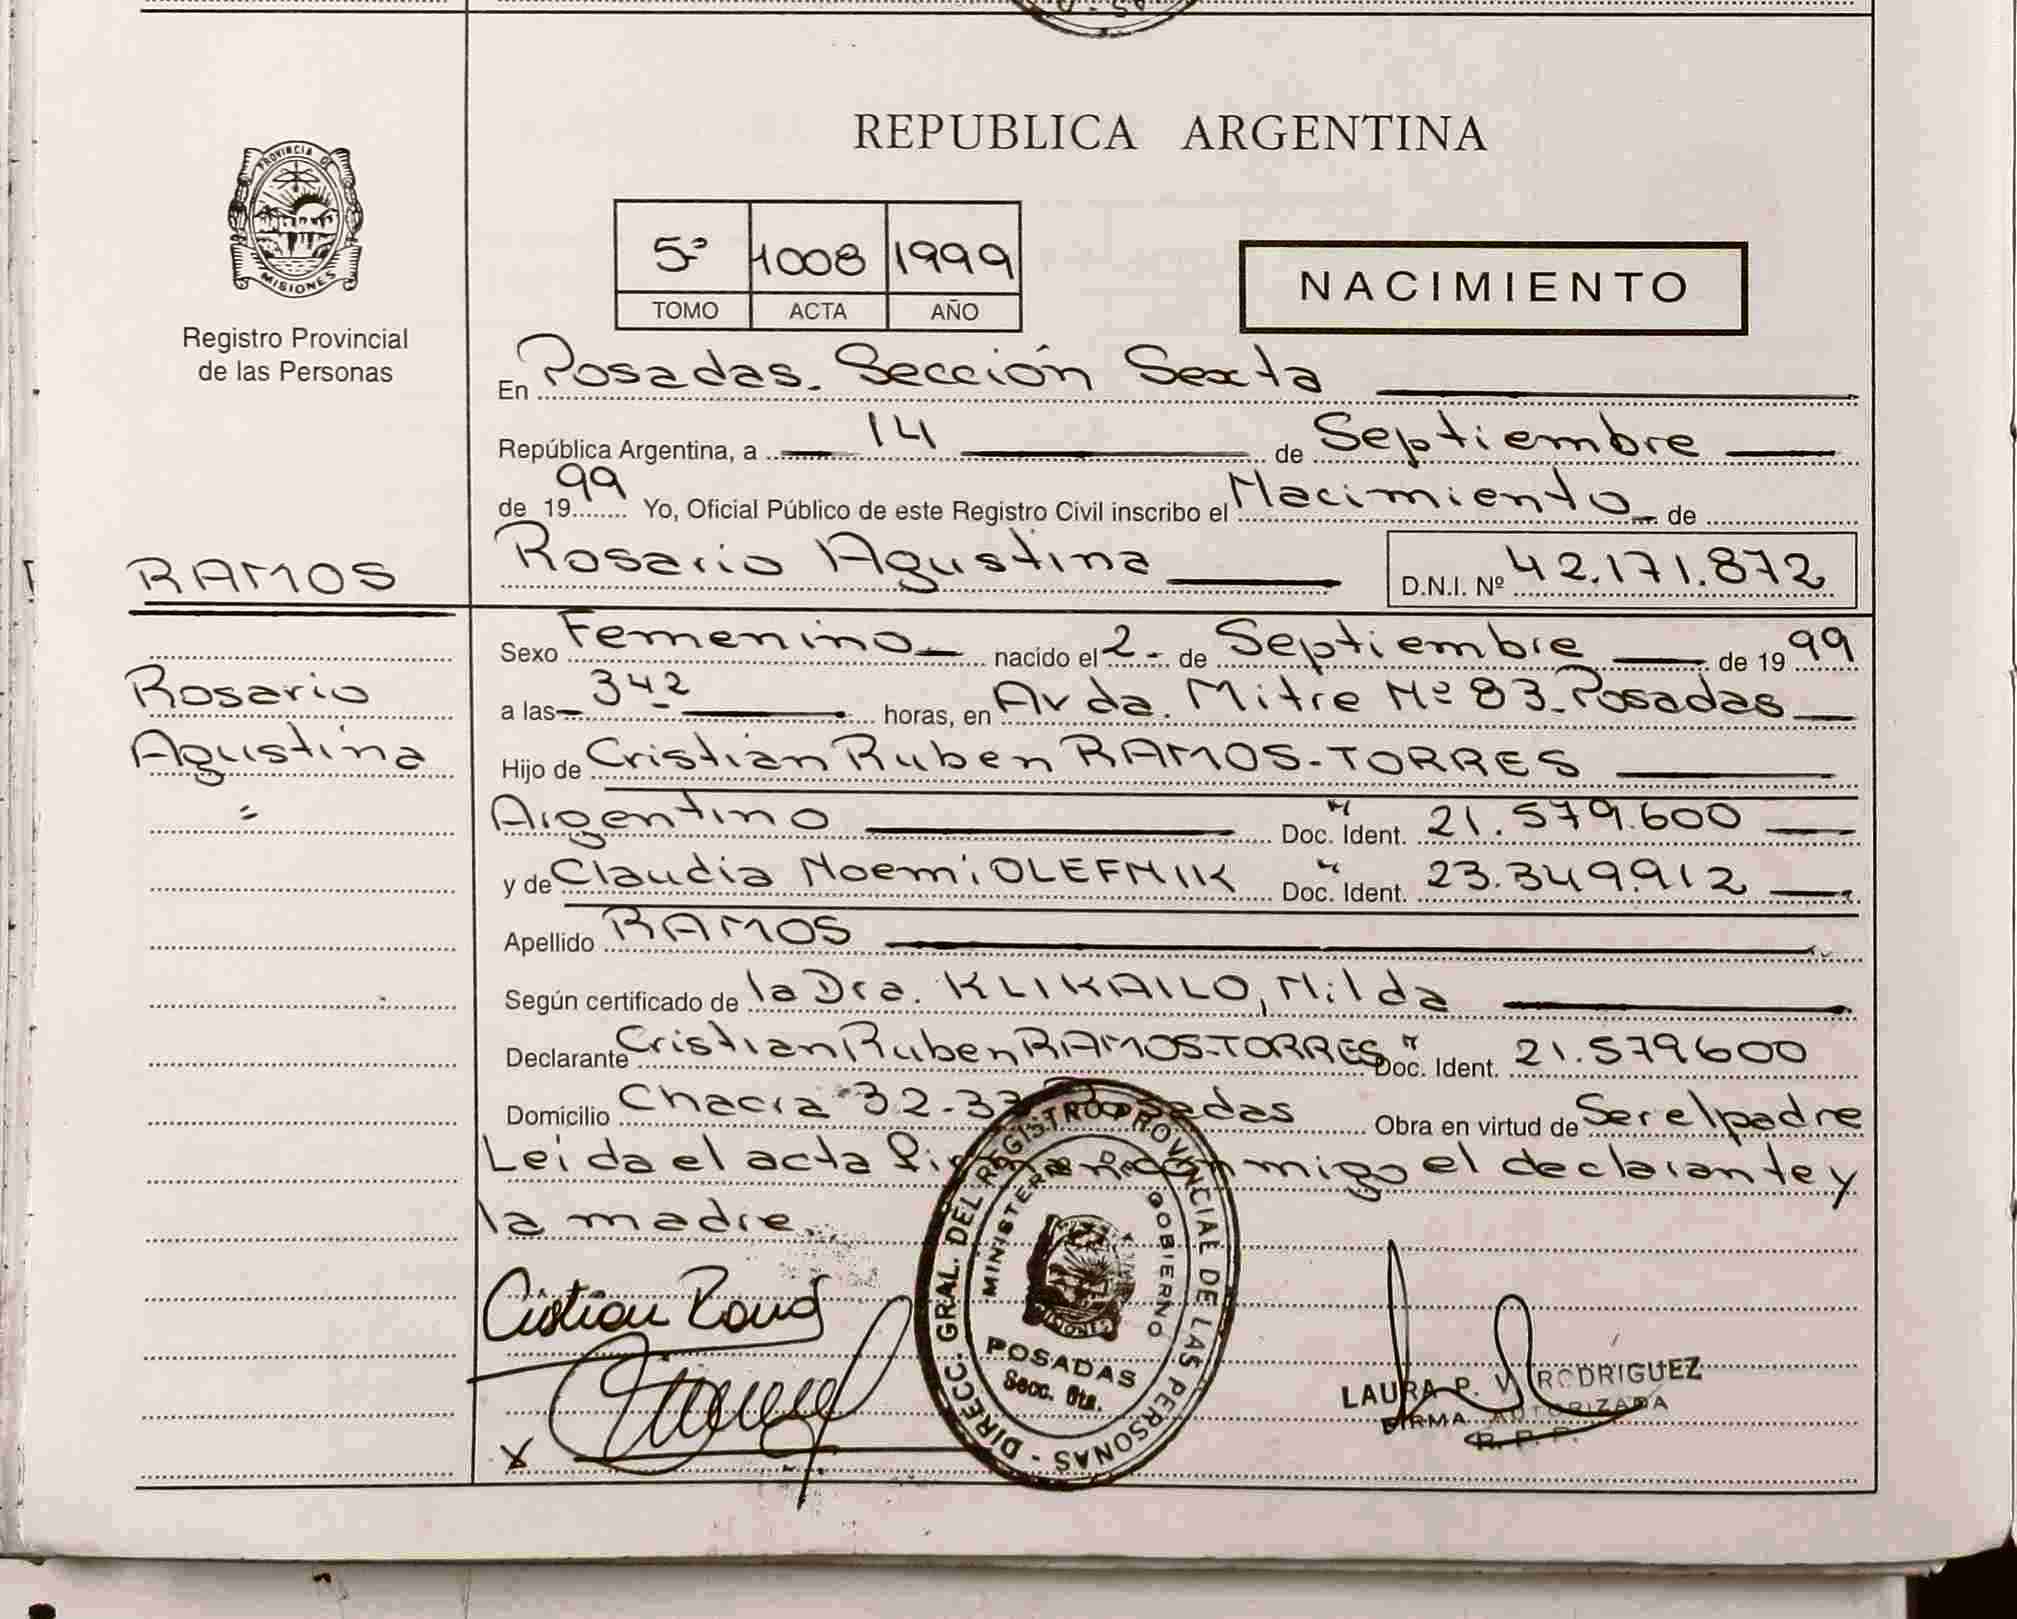 REPUBLICA ARGENTINA
PROVINCIA DE MISIONES
Registro Provincial
de las Personas
5º 1008 1999
TOMO ACTA AÑO
NACIMIENTO
En Posadas. Sección Sexta
República Argentina, a 14 de Septiembre
de 1999 Yo, Oficial Público de este Registro Civil inscribo el Nacimiento de
RAMOS
Rosario Agustina
D.N.I. Nº 42.171.872
Rosario
Agustina
Sexo Femenino nacido el 2 de Septiembre de 1999
a las 3 42 horas, en Avda. Mitre Nº 83-Posadas
Hijo de Cristian Ruben RAMOS-TORRES
Argentino Doc. Ident. 21.579.600
y de Claudia Noemi OLEFNIK Doc. Ident. 23.349.912
Apellido RAMOS
Según certificado de la Dra. KLIKAILO, Nilda
Declarante Cristian Ruben RAMOS-TORRES Doc. Ident. 21.579600
Domicilio Chacra 32-33 Posadas Obra en virtud de Ser el padre
Leida el acta firman conmigo el declarante y
la madre.
Cristian Ramos
DIRECC. GRAL. DEL REGISTRO PROVINCIAL DE LAS PERSONAS
MINISTERIO DE GOBIERNO
MISIONES
POSADAS
Secc. 6ta.
LAURA P. V. RODRIGUEZ
FIRMA AUTORIZADA
R. P. P.